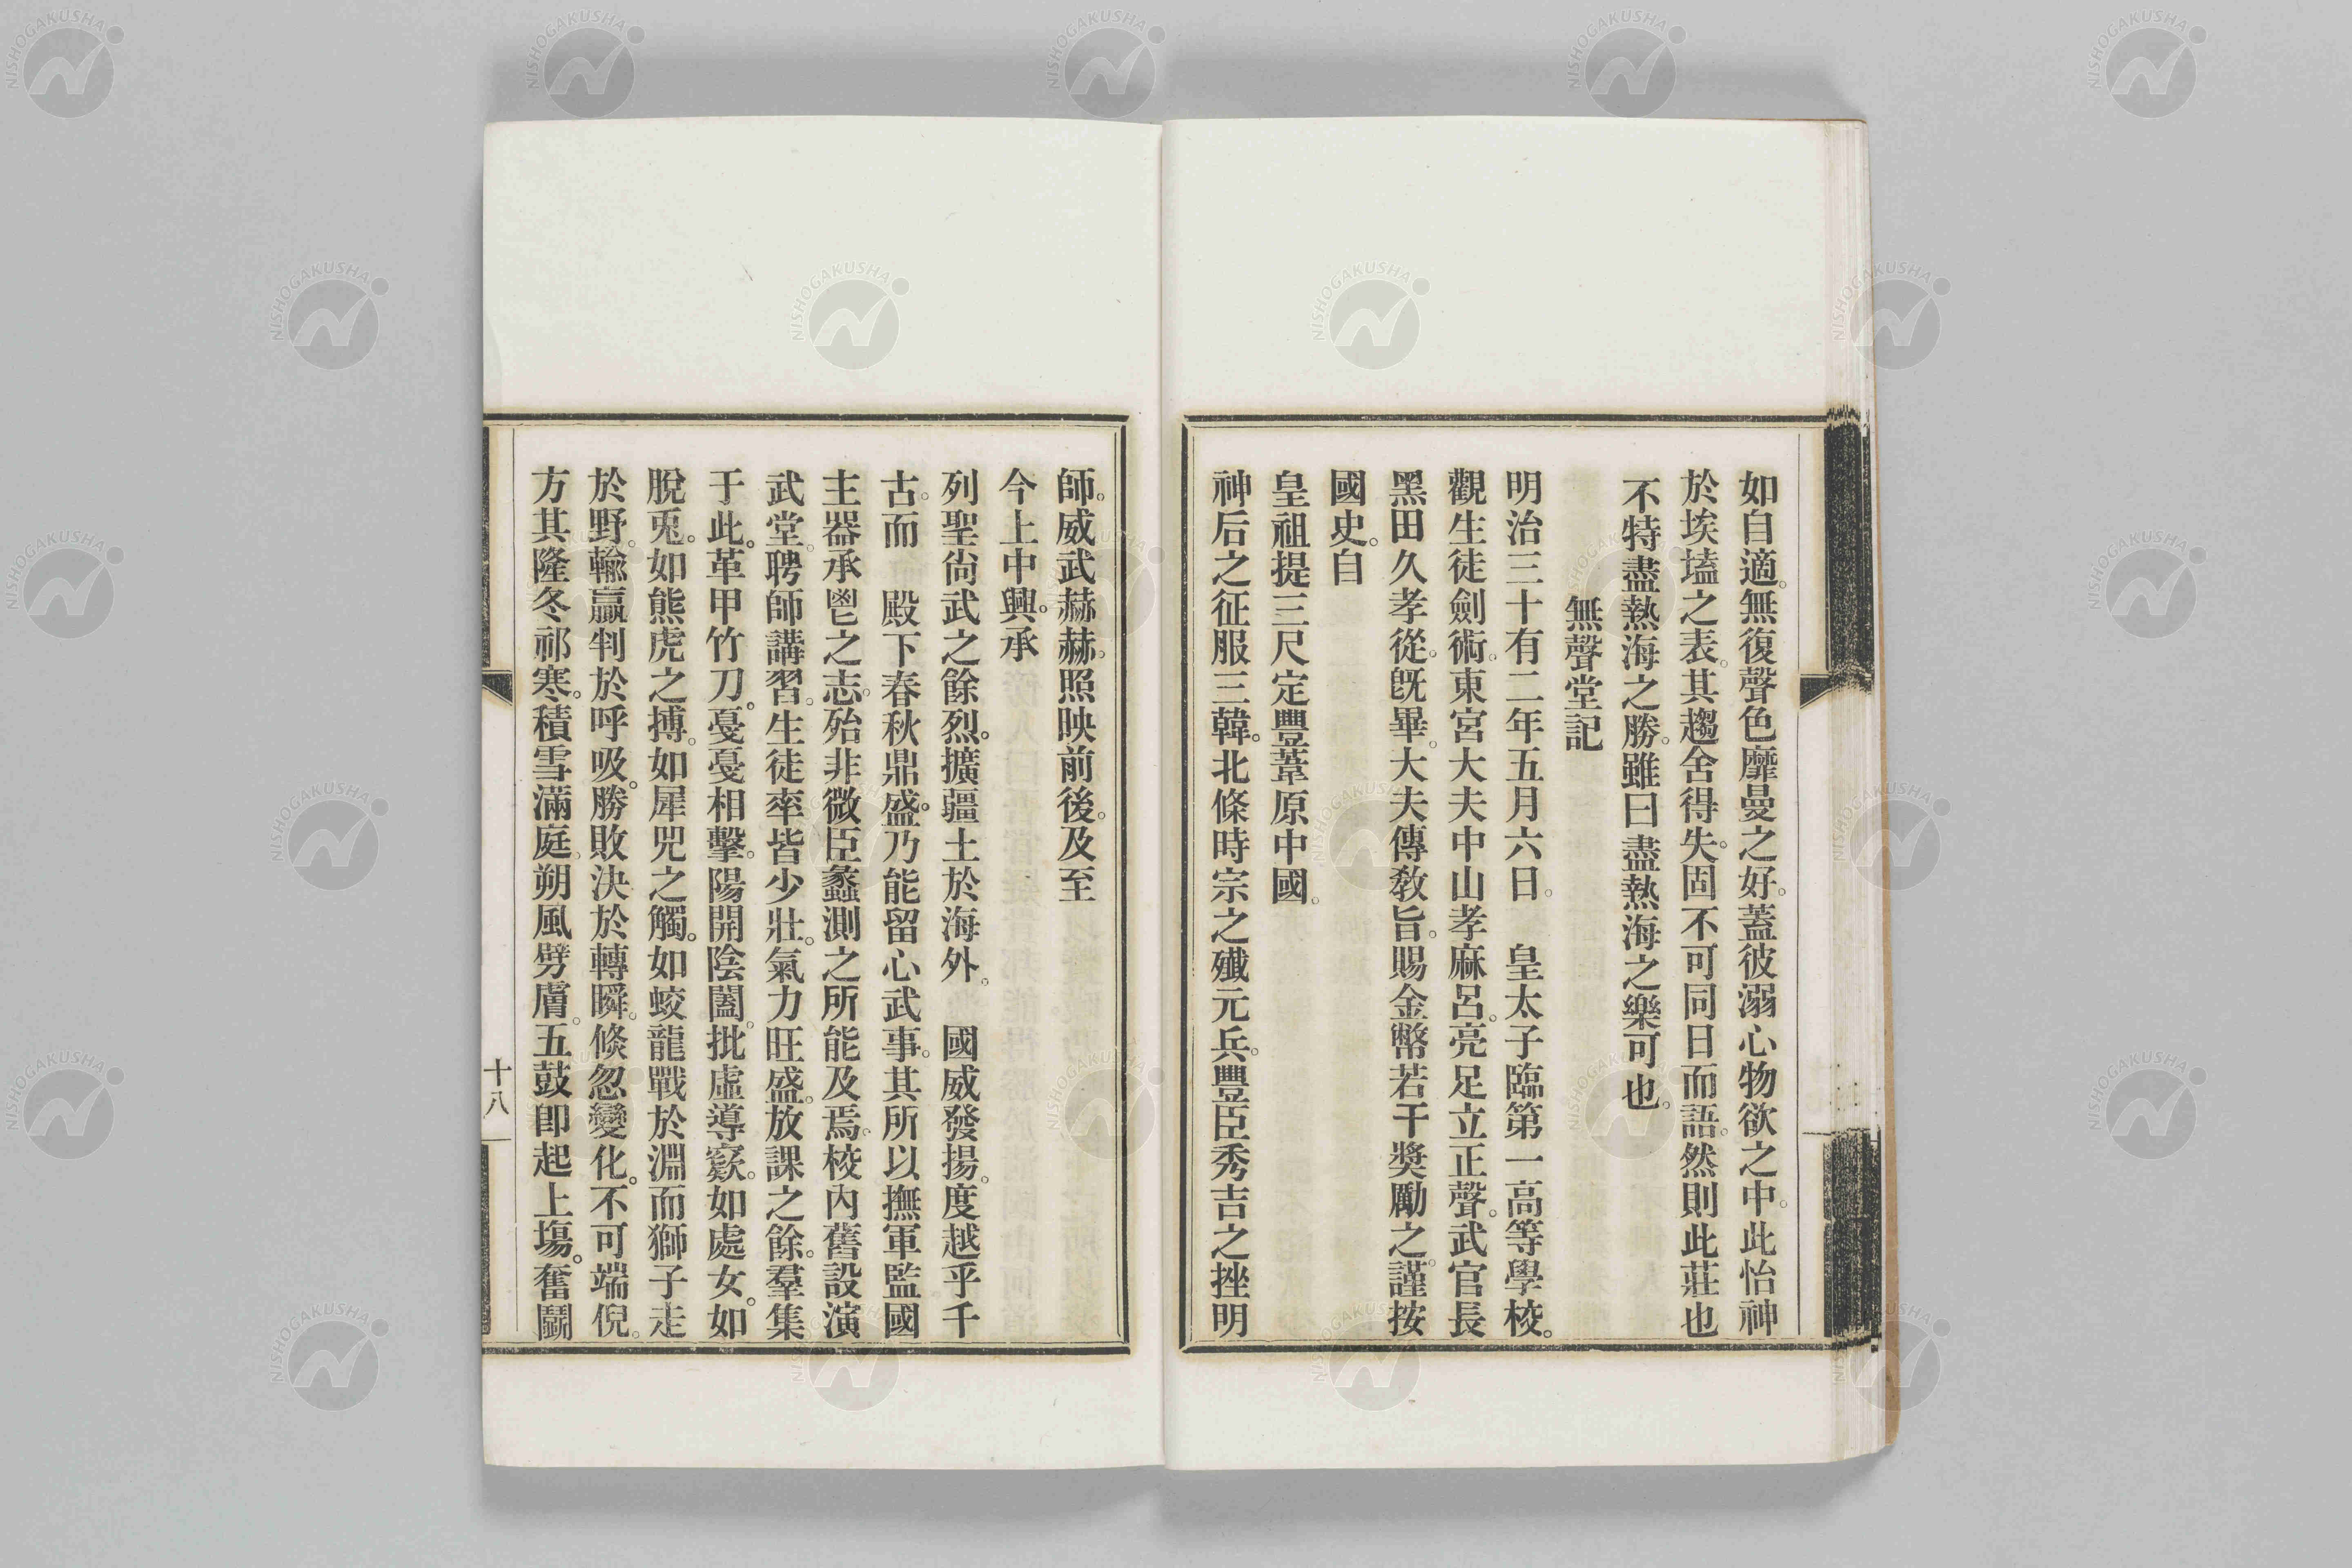 如自適。無復聲色靡曼之好。蓋彼溺心物欲之中。此怡神
於埃壒之表。其趨舍得失。固不可同日而語。然則此莊也
不特盡熱海之勝。雖曰盡熱海之樂可也。
無聲堂記
明治三十有二年五月六日。　皇太子臨第一高等學校。
觀生徒劍術。東宮大夫中山孝麻呂。亮足立正聲。武官長
黑田久孝從。既畢。大夫傳敎旨。賜金幣若干奬勵之。謹按
國史。自
皇祖提三尺定豐葦原中國。
神后之征服三韓。北條時宗之殲元兵。豐臣秀吉之挫明
師。威武赫赫。照映前後。及至
今上中興。承
列聖尙武之餘烈。擴疆土於海外。　國威發揚。度越乎千
古。而　殿下春秋鼎盛。乃能留心武事。其所以撫軍監國
主器承鬯之志。殆非微臣蠡測之所能及焉。校內舊設演
武堂。聘師講習。生徒率皆少壯。氣力旺盛。放課之餘。羣集
于此。革甲竹刀。戞戞相擊。陽開陰闔。批虛導窾。如處女。如
脫兎。如熊虎之搏。如犀兕之觸。如蛟龍戰於淵而獅子走
於野。輸贏判於呼吸。勝敗決於轉瞬。倏忽變化。不可端倪。
方其隆冬祁寒。積雪滿庭。朔風劈膚。五鼓卽起上塲。奮鬪
十八
NISHOGAKUSHA